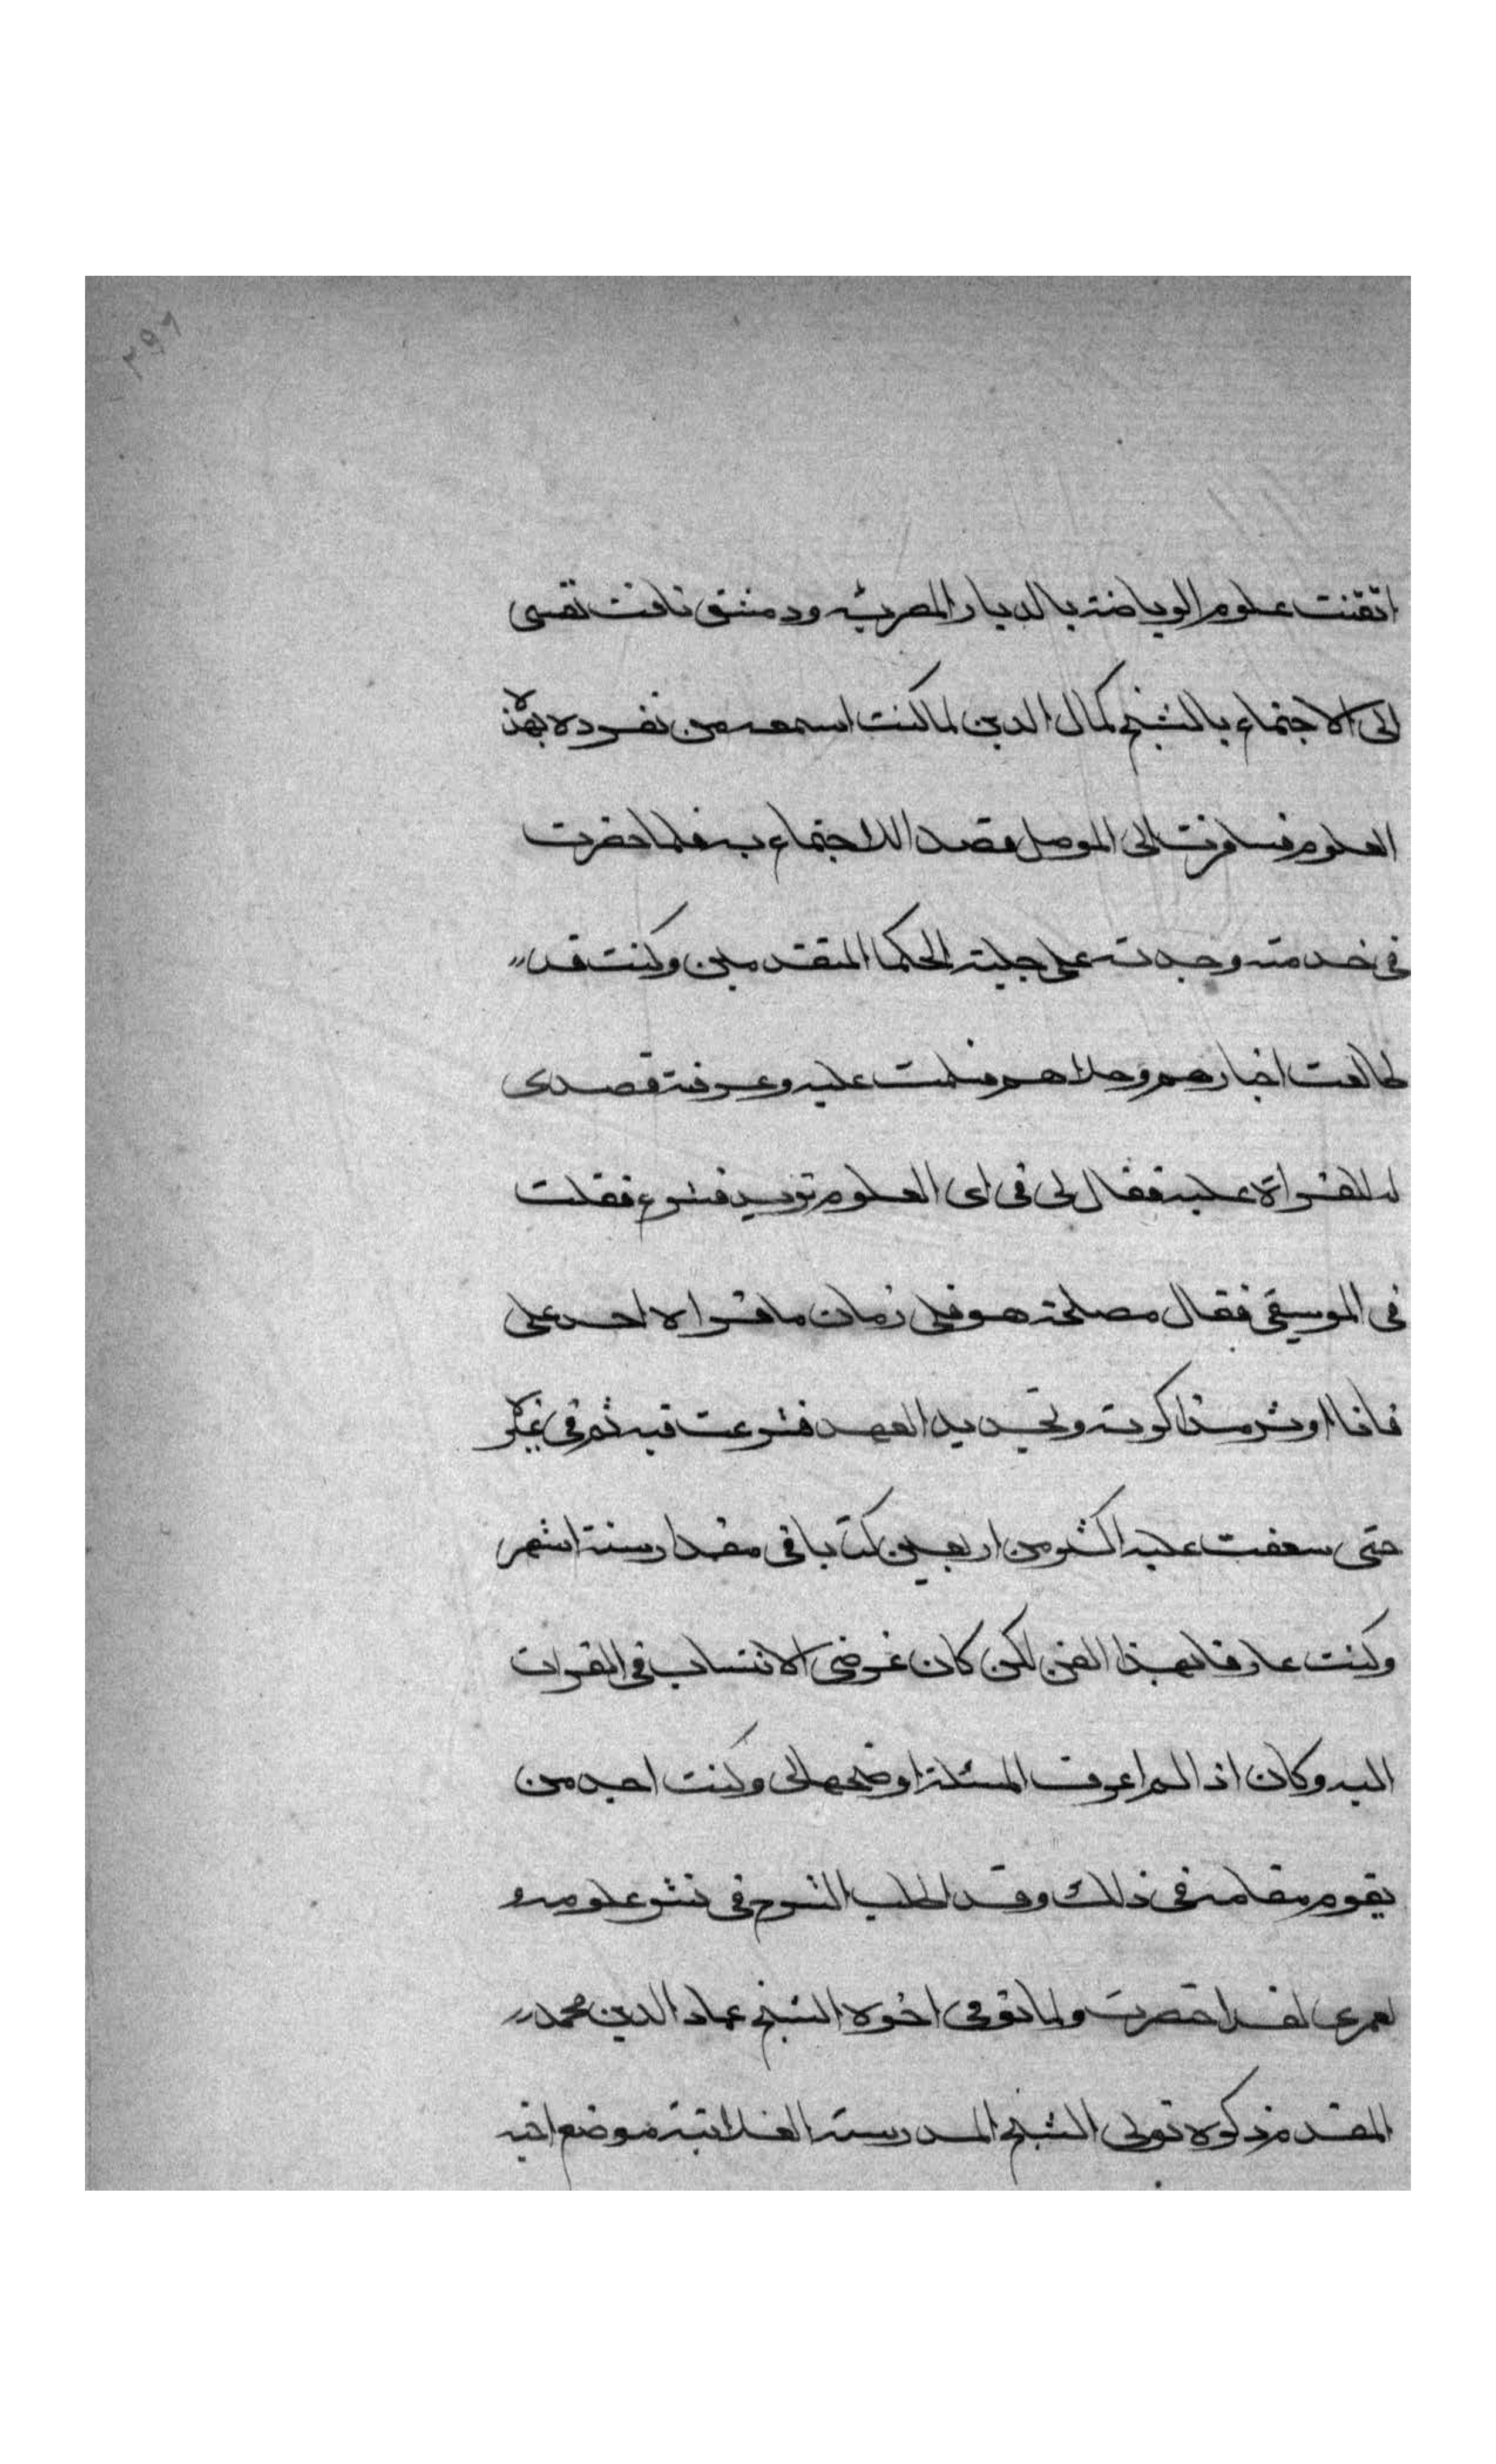 ٢٩٦
اتقنت علوم الرياضة بالديار المصرية ودمشق تاقت نفسى
الى الاجتماع بالشيخ كمال الدين لما كنت اسمعه من تفرده بهذه
العلوم فسافرت الى الموصل قصد اللاجتماع به فلما حضرت
فى خدمته وجدته على حلية الحكما المتقدمين وكنت قد
طالعت اخبارهم وحلاهم فسلمت عليه وعرفته قصدى
له للقراة عليه فقال لى فى اى العلوم تريد تشرع فقلت
فى الموسيقى فقال مصلحة هو فلى زمان ما قراه احد على
فانا اوثر مذاكرته وتجديد العهد فشرعت فيه ثم فى غيره
حتى سعفت عليه اكثر من اربعين كتابا فى مقدار ستة اشهر
وكنت عارفا بهذا الفن لكن كان غرضى الانتساب فى القراة
اليه وكان اذا لم اعرف المسئلة اوضحها لى وكنت اجد من
يقوم مقامه فى ذلك وقد اطلب الشرح فى نشر علومه و
لعمرى لقد اختصرت ولما توفى اخوه الشيخ عماد الدين محمد
المقدم ذكره تولى الشيخ المدرسة العلائية موضع اخيه